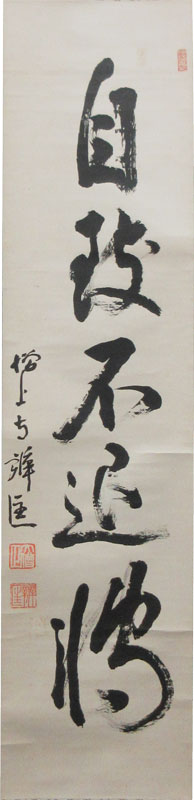 自致不退轉
增上寺辨匡